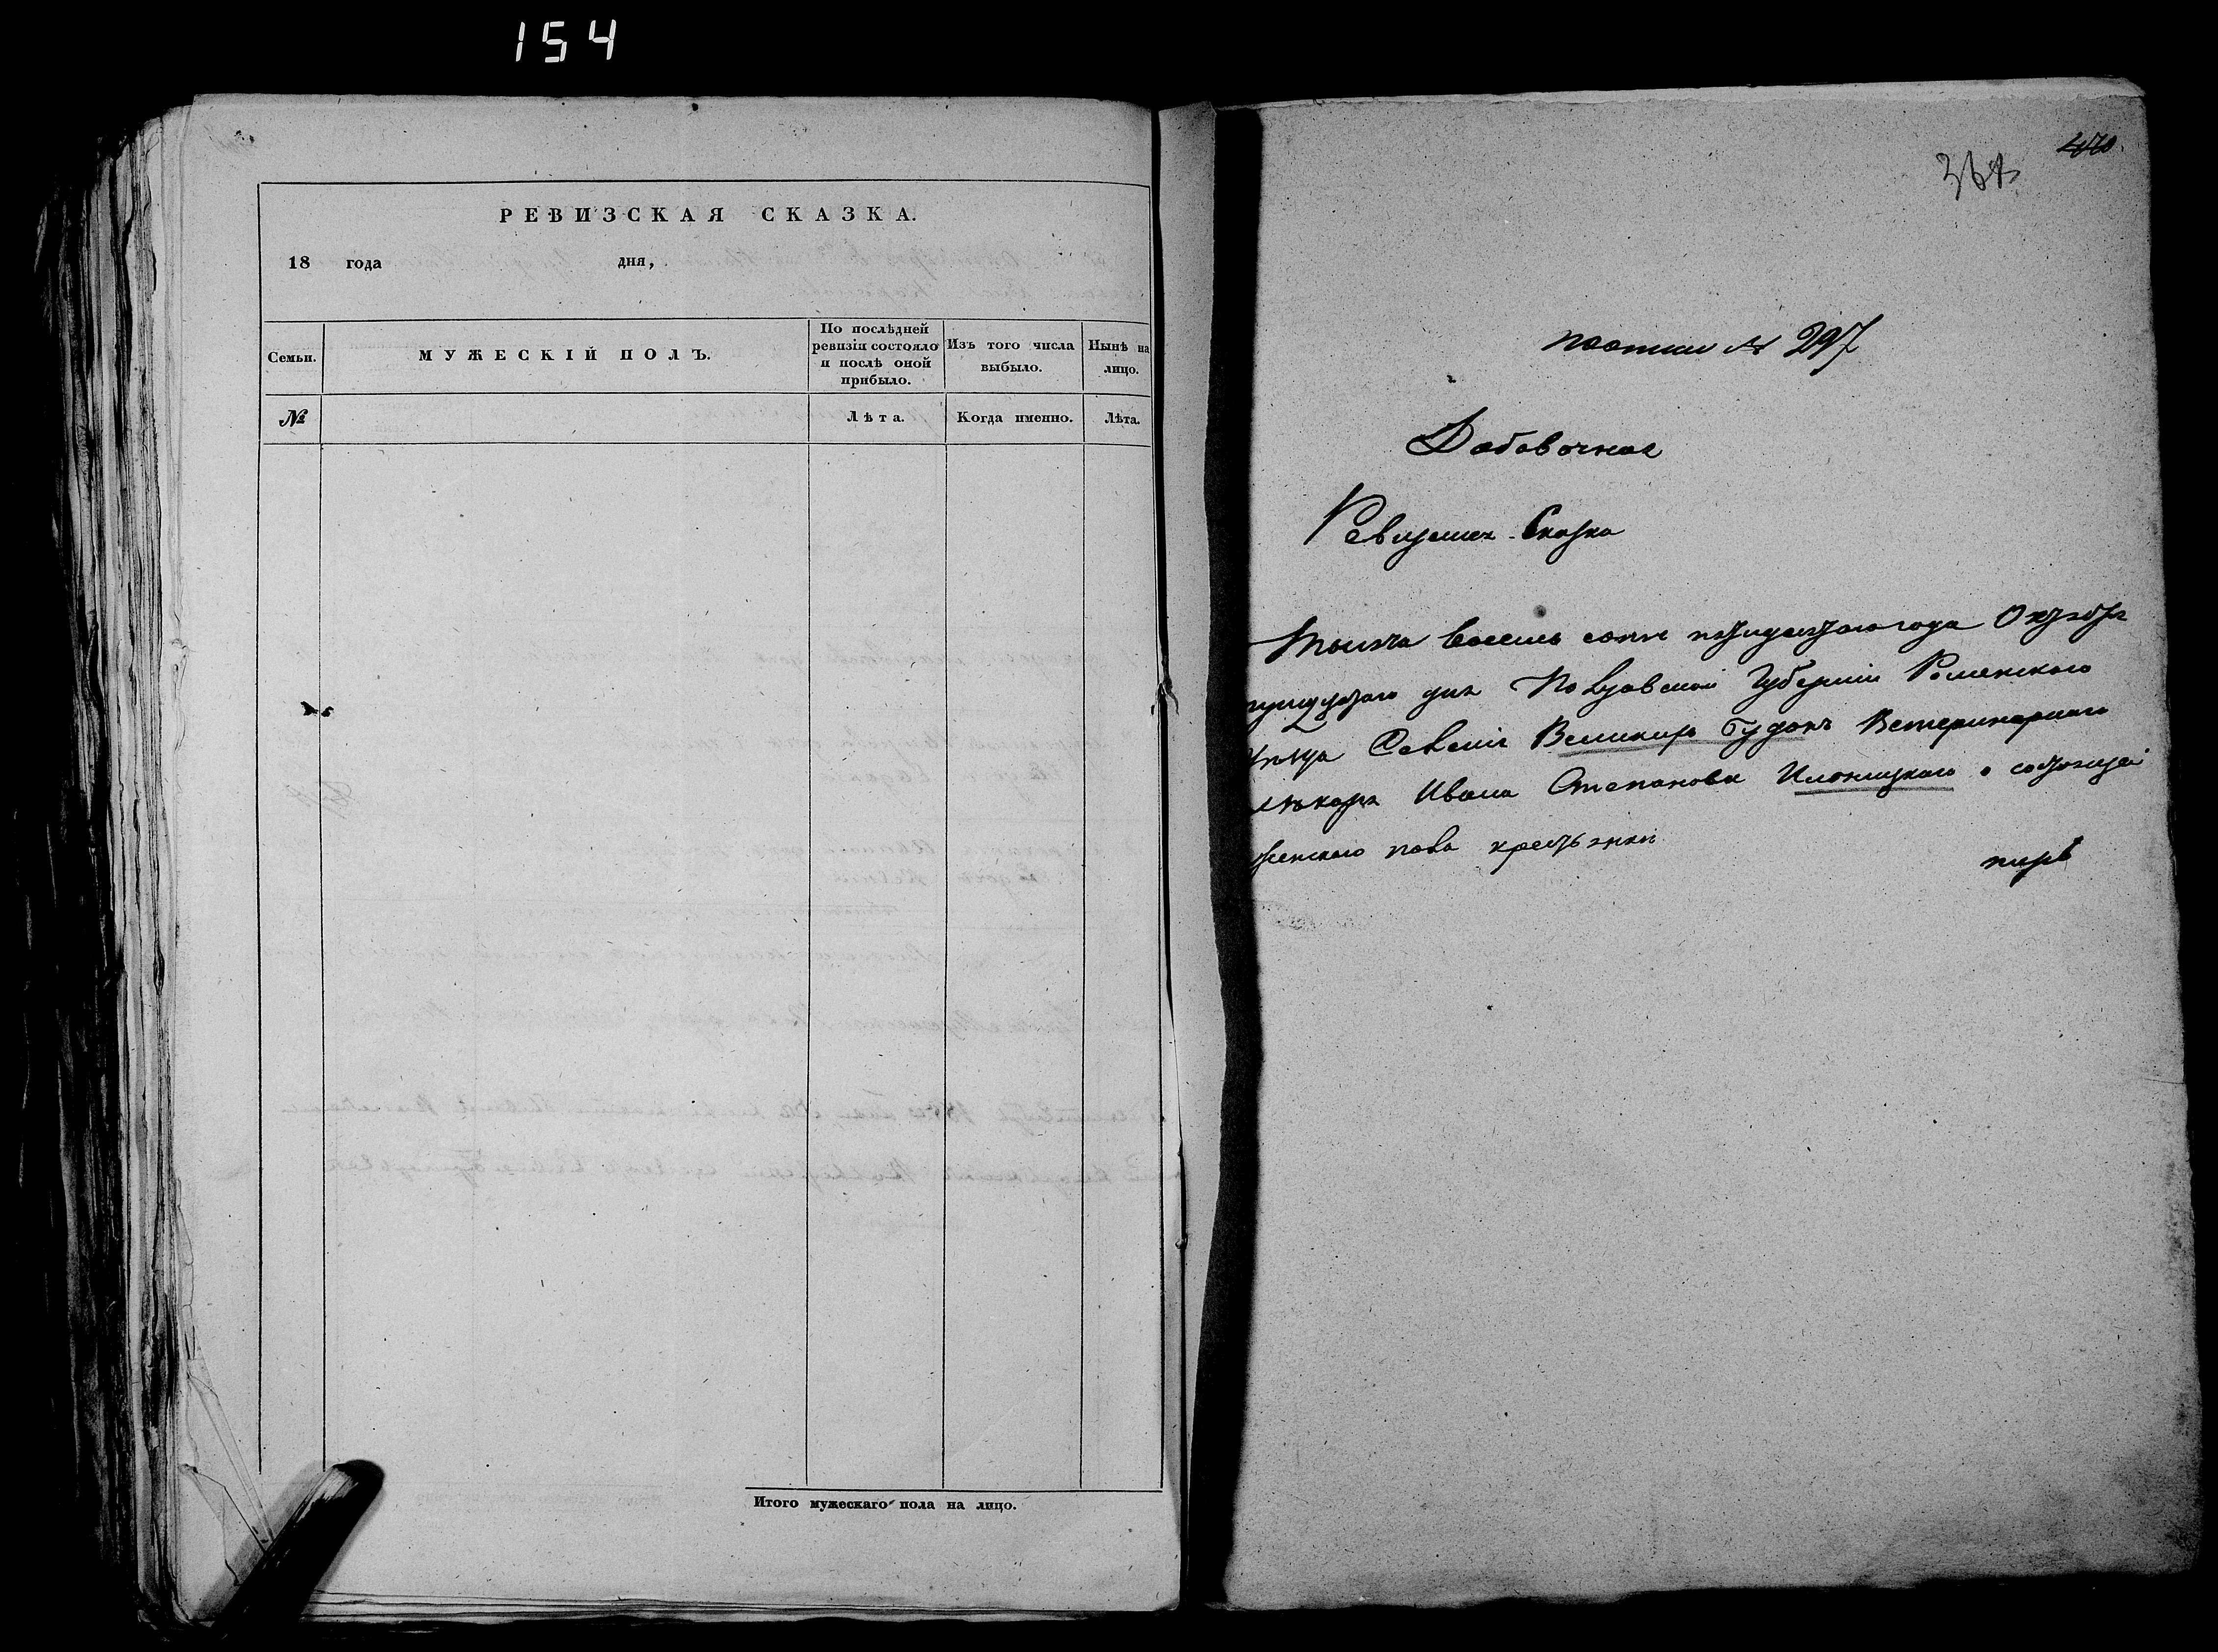 154
РЕВИЗСКАЯ СКАЗКА.
18 года дня,
Семьи.
МУЖЕСКІЙ ПОЛЪ.
По послѣдней
ревизіи состояло
и послѣ оной
прибыло.
Изъ того числа
выбыло.
Нынѣ на
лицо.
№
Лѣта.
Когда именно.
Лѣта.
Итого мужескаго пола на лицо.
470
№ 297
Добавочная
Ревизская Сказка
Тысяча восемь сотъ пятидесятого года Октября
дня Полтавской Губерніи Роменского
Селенія Великихъ Будокъ Ветеринарного
лѣкаря Ивана Степанова о состоящей
женского пола крестьянки